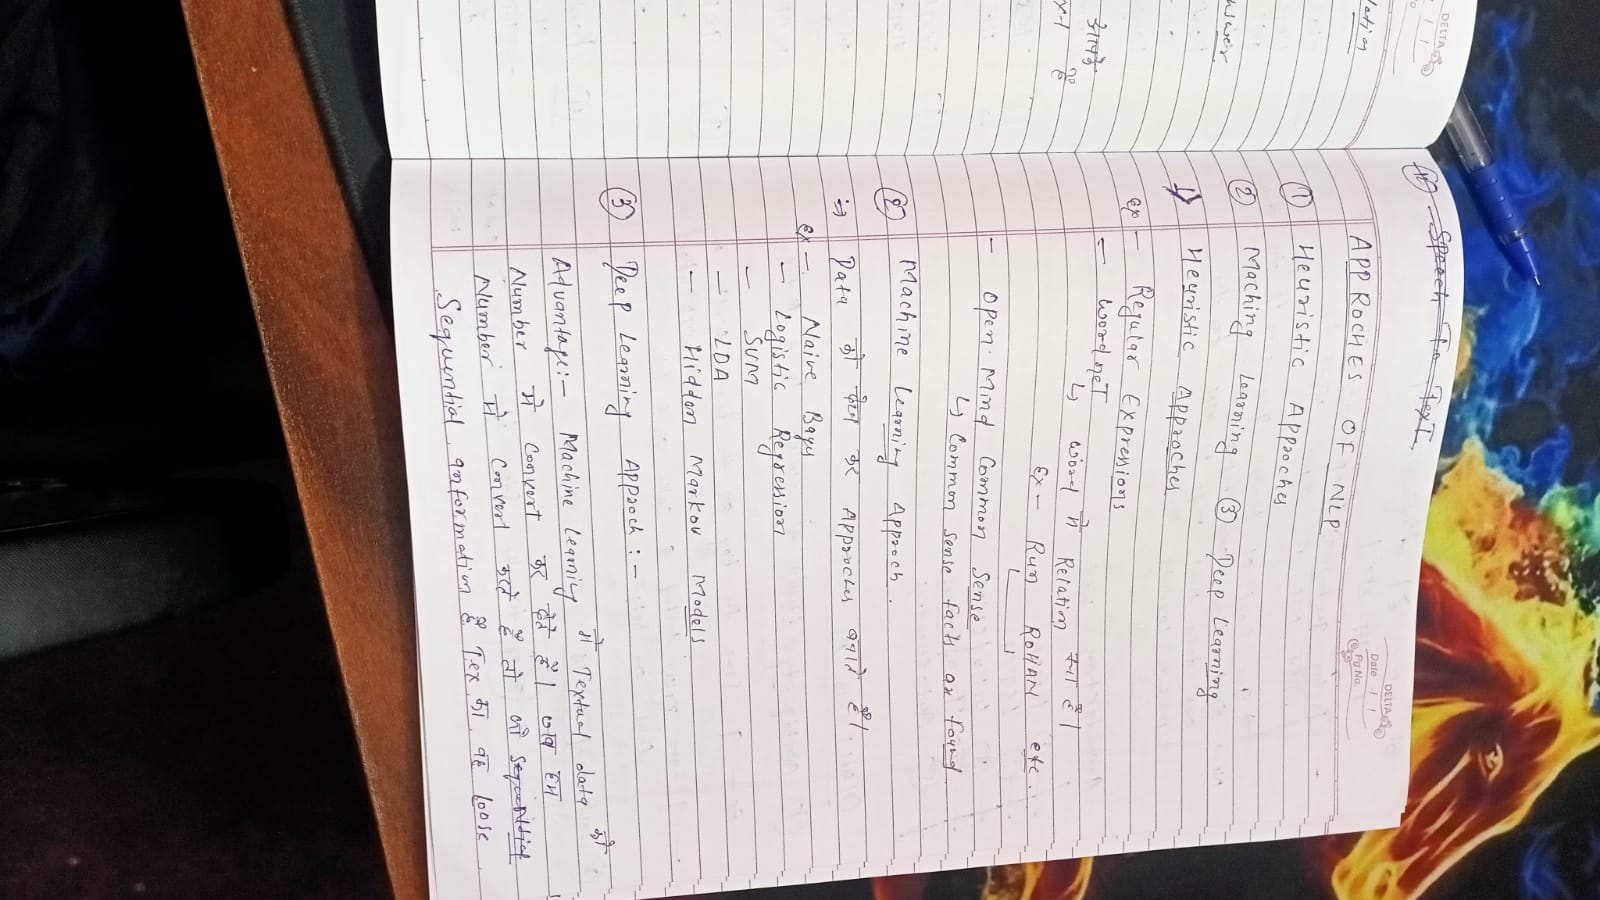 DELTA
Date / /
Pg No.
10 Speech To Text
APPROCHES OF NLP
① Heuristic Approches
② Maching Learning ③ Deep Learning
1 Heuristic Approches
ex - Regular Expressions
- wordnet
↳ word में Relation बता है।
ex - Run ROHAN etc.
- Open Mind Common Sense
↳ Common Sense fach ax found
② Machine Learning Approch.
=> Data को देख कर Approches बनाते है।
ex - Naive Bays
- Logistic Regression
- SVM
- LDA
- Hiddon Markov Models
③ Deep Learning Approch :-
Advantage:- Machine Learning में Textual data को
Number में Convert कर देते हैं। जब हम
Number में Convert करते हैं तो जो Sequintial
Sequential information है Tex का वह loose
lation
DELTA
/ /
swer
x-1 है